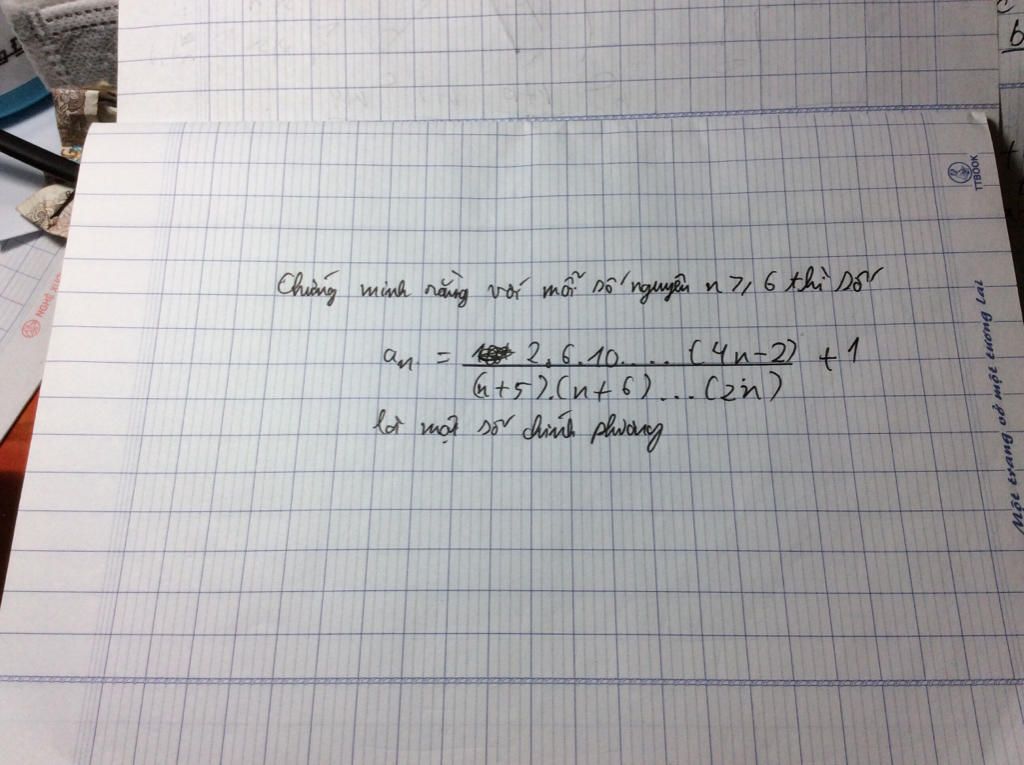 Chứng minh rằng với mỗi số nguyên n ≥ 6 thì số
aₙ = 2.6.10....(4n-2) / (n+5).(n+6)...(2n) + 1
là một số chính phương
TTBOOK
Một trang vở một tương lai